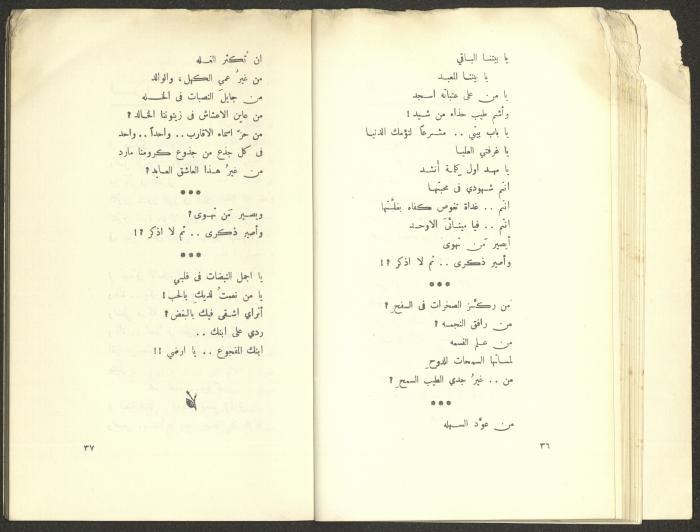 يا بيتنا الباقي
يا بيتنا المعبد
يا من على عتباته اسجد
وأشم طيب حذاء من شيد !
يا باب بيتي .. مشرعاً لتؤمك الدنيا
يا غرفتي العليا
يا مهد اول كلمة أنشد
انتم شهودي في محبتها
انتم .. غداة تغوص كفاه بغلّتها
انتم .. فيا مينائي الاوحد
أيصير مَن نهوى
وأصير ذكرى .. ثم لا اذكر ؟!
***
مَن ركّز الصخرات في السفحِ ؟
من رافق النجمه ؟
من علم القسمه
لمساتها السمحات للدوحِ
من .. غيرُ جدي الطيب السمحِ ؟
***
من عوّد السبله
٣٦
ان تُكثر الغله
من غيرُ عمي الكهل، والوالد
من جابلَ النصبات في الحله
من عاين الاعشاش في زيتوننا الخالد ؟
من حزّ اسماء الاقارب .. واحداً .. واحد
في كل جذع من جذوع كرومنا مارد
من غيرُ هذا العاشق العابد ؟
***
ويصير مَن نهوى ؟
وأصير ذكرى .. ثم لا اذكر ؟!
***
يا اجمل النبضات في قلبي
يا من نعمتُ لديكِ بالحب !
أتراي اشقى فيك بالبغض ؟
ردي على ابنك ..
ابنك المفجوع .. يا ارضي !!
٣٧